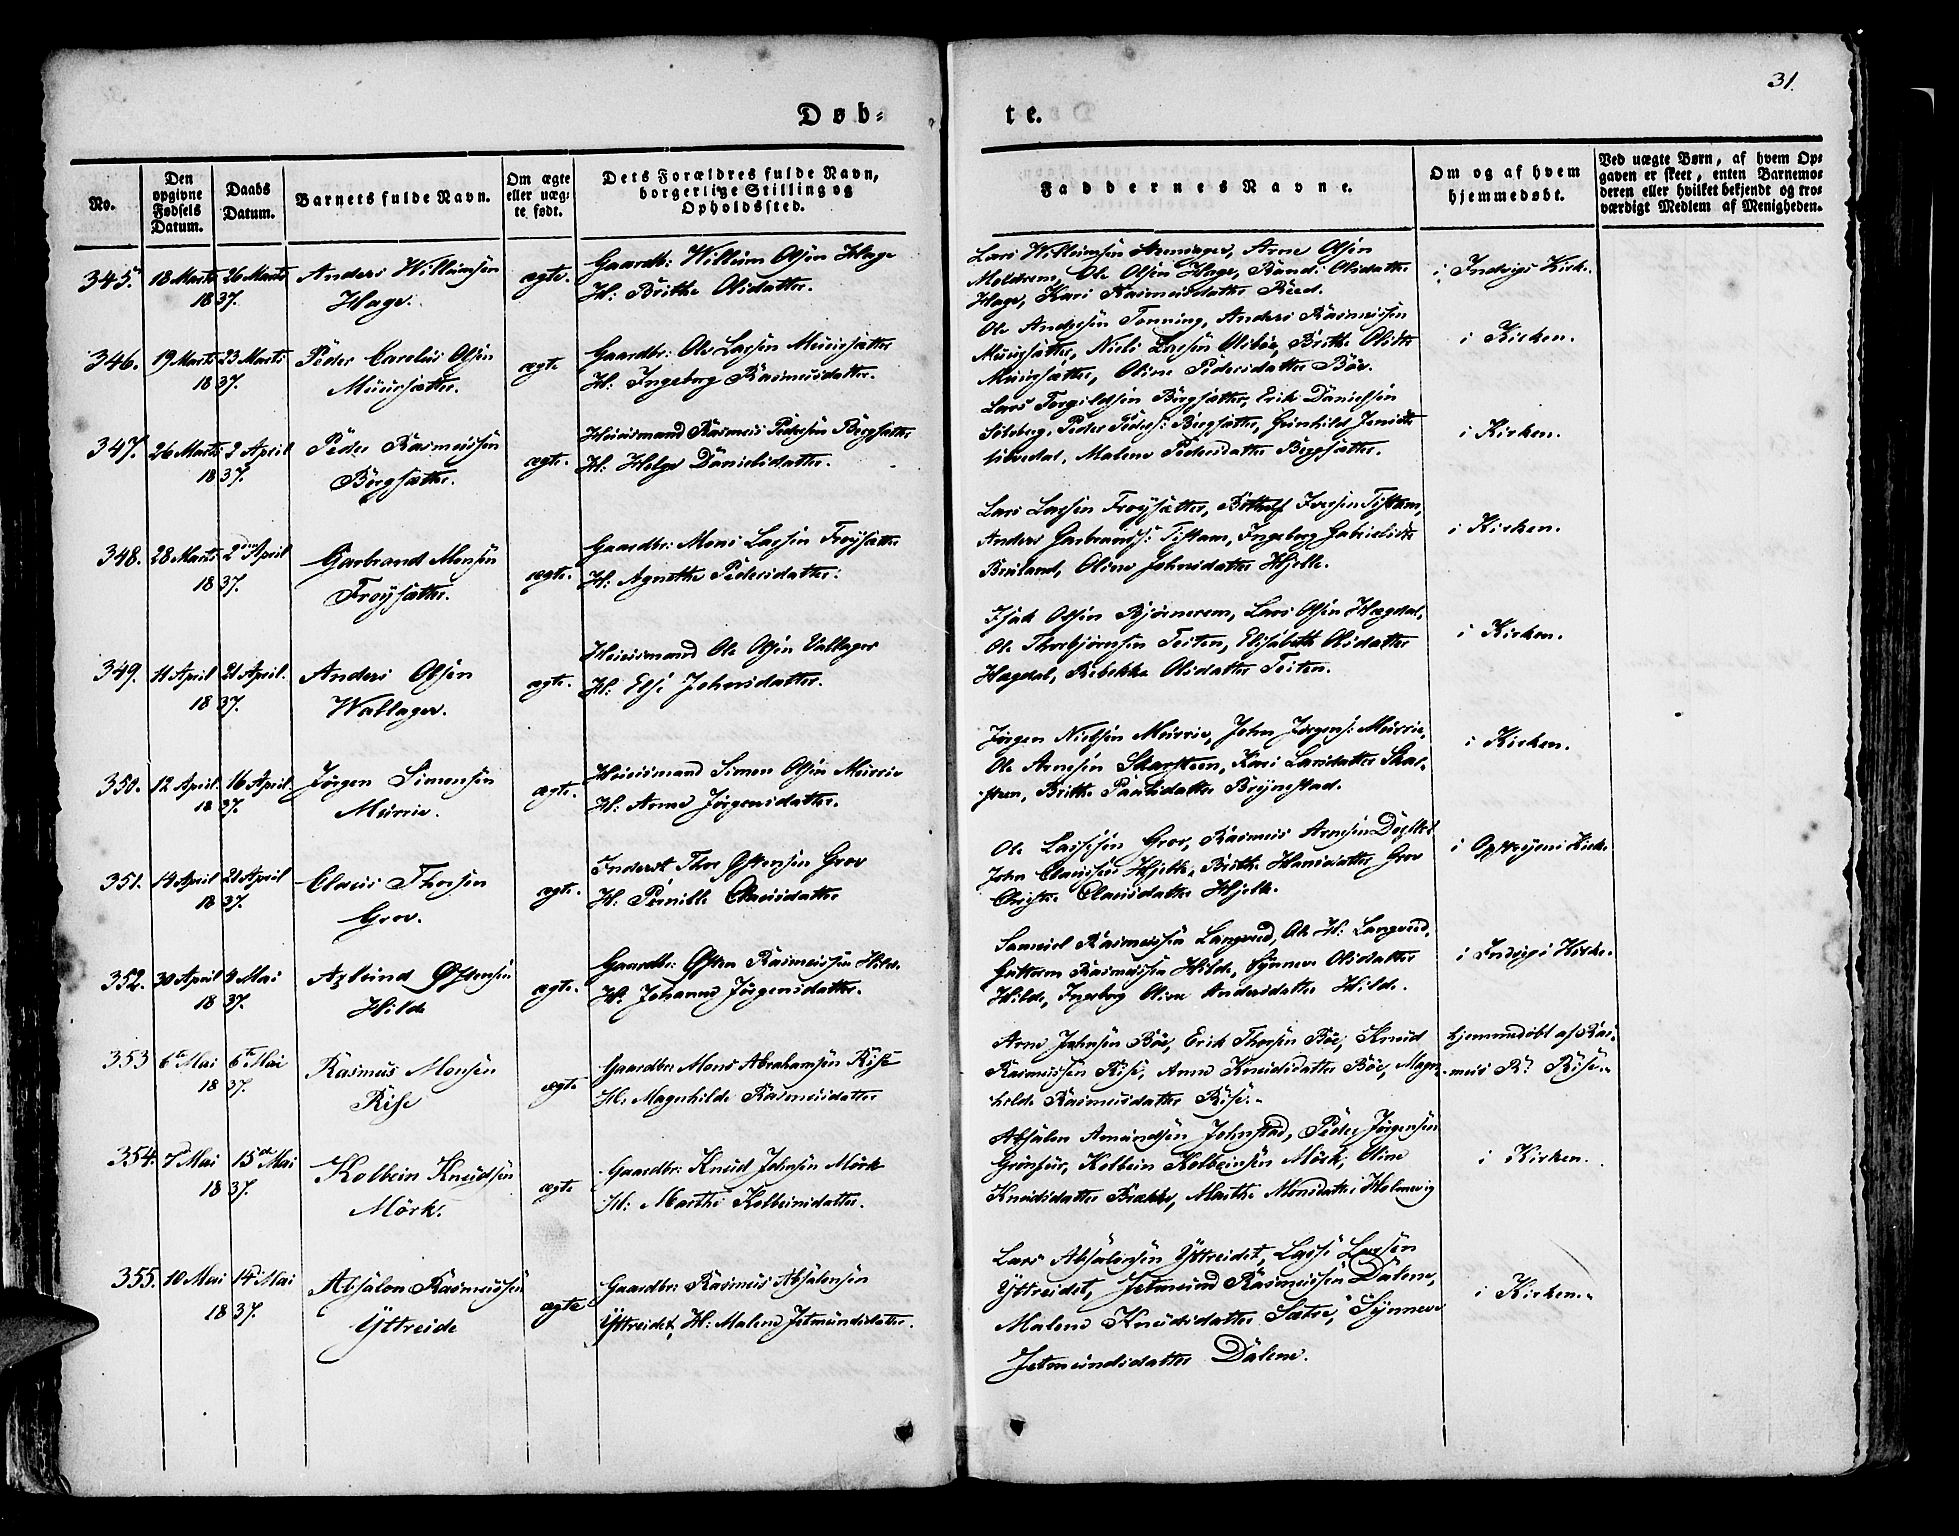 31.
Døb-
te.
No.
Den opgivne Fødsels Datum.
Daabs Datum.
Barnets fulde Navn.
Om ægte eller uægte født.
Dets Forældres fulde Navn, borgerlige Stilling og Opholdssted.
Faddernes Navne.
Om og af hvem hjemmedøbt.
Ved uægte Børn, af hvem Opgaven er skeet, enten Barnemoderen eller hvilket bekjendt og troværdigt Medlem af Menigheden.
345. 18 Marts 26 Marts Anders Willumsen ægte. Gaardb: Willum Olsen Hage
1837. Hage. H: Brithe Olsdatter.
Lars Willumsen Heminger, Arne Olsen
Meldrem, Ole Olsen Hage, Randi Olsdatter
Hage, Kari Rasmusdatter Reed.
i Indvigs Kirk.
346. 19 Marts 23 Marts Peder Carelius Olsen ægte Gaardbr: Ole Lassen Muursætter
1837. Muursætter. H: Ingeborg Rasmusdatter.
Ole Andersen Tonning, Anders Rasmussen
Muursætter, Niels Lassen Olsbøe, Brithe Olsdtr
Muursætter, Oline Pedersdatter Bøe.
i Kirken.
347. 26 Marts 2 April Peder Rasmussen ægte. Huusmand Rasmus Pedersen Bergsætter
1837. Bergsætter. H: Helge Danielsdatter.
Lars Torgildsen Bergsætter, Erik Danielsen
Solvberg, Peder Peders: Bergsætter, Gunhild Jensdtr
Malene Pedersdatter Bergsætter.
i Kirken.
348. 28 Marts 2den April Garbrand Monsen ægte. Gaardbr: Mons Lassen Frøysætter
1837. Frøysætter. H: Agnethe Pedersdatter:
Lars Lassen Frøysætter, Botholf Iversen Tistam,
Anders Garbrands: Tistam, Ingeborg Gabrielsdtr
Bruland, Oline Johnsdatter Hjelle.
i Kirken.
349. 11 April 21 April. Anders Olsen ægte. Huusmand Ole Olsen Vallager
1837. Wallager. H: Else Johnsdatter.
Isak Olsen Bjørnerem, Lars Olsen Hægdal,
Ole Thorbjørnsen Teiten, Elisabeth Olsdatter
Hægdal, Rebekke Olsdatter Teiten.
i Kirken.
350. 12 April 16 April Jørgen Simonsen ægte. Huusmand Simon Olsen Muurrie
1837. Muurrie. H: Anne Jørgensdatter.
Jørgen Nielsen Muurrie, John Jørgens: Muurrie,
Ole Arnesen Skarsteen, Kari Larsdatter Skar-
steen, Brithe Paulsdatter Brynestad.
i Kirken.
351. 14 April 21 April Claus Thorsen ægte. Inderst Thor Østensen Grov
1837. Grov. H: Pernille Clausdatter
Ole Lassesen Grov, Rasmus Arnesen
John Clausen Hjelle, Brithe Hansdatter Grov
Christi Clausdatter Hjelle.
i Opstryens Kirke
352. 30 April 4 Mai Azlind Østensen ægte. Gaardbr: Østen Rasmussen Hilde
1837. Hilde H: Johanne Jørgensdatter.
Samuel Rasmussen Langvod, Ole H: Langvod,
Guttorm Rasmussen Hilde, Synneve Olsdatter
Hilde, Ingeborg Oline Andersdatter Hilde.
i Indvigs Kirke.
353 6te Mai 6te Mai Rasmus Monsen ægte Gaardbr: Mons Abrahamsen Rise
1837. Rise H: Magnhilde Rasmusdatter
Arne Johnsen Bøe, Erik Thorsen Bøe, Knud
Rasmussen Rise, Anne Knudsdatter Bøe, Magn-
hilde Rasmusdatter Rise.
hjemmedøbt af Ras-
mus Rs Rise.
354. 7de Mai 15de Mai Kolbein Knudsen ægte Gaardbr: Knud Johnsen Mörk
1837. Mörk. H: Marthe Kolbeinsdatter.
Absalon Amundsen Johnstad, Peder Jørgensen
Kolbein Kolbeinsen Mörk, Oline
Knudsdatter Brække, Marthe Monsdatter Holmevig
i Kirken.
355. 10 Mai 14de Mai Absalon Rasmussen ægte Gaardbr: Rasmus Absalonsen
1837. Yttreide Yttreidet, H: Malene Jetmundsdatter.
Lars Absalonsen Yttreidet, Lasse Larsen
Yttreidet, Jetmund Rasmussen Dalene,
Malene Knudsdatter Sætre, Synneve
Jetmundsdatter Dalene.
i Kirken.